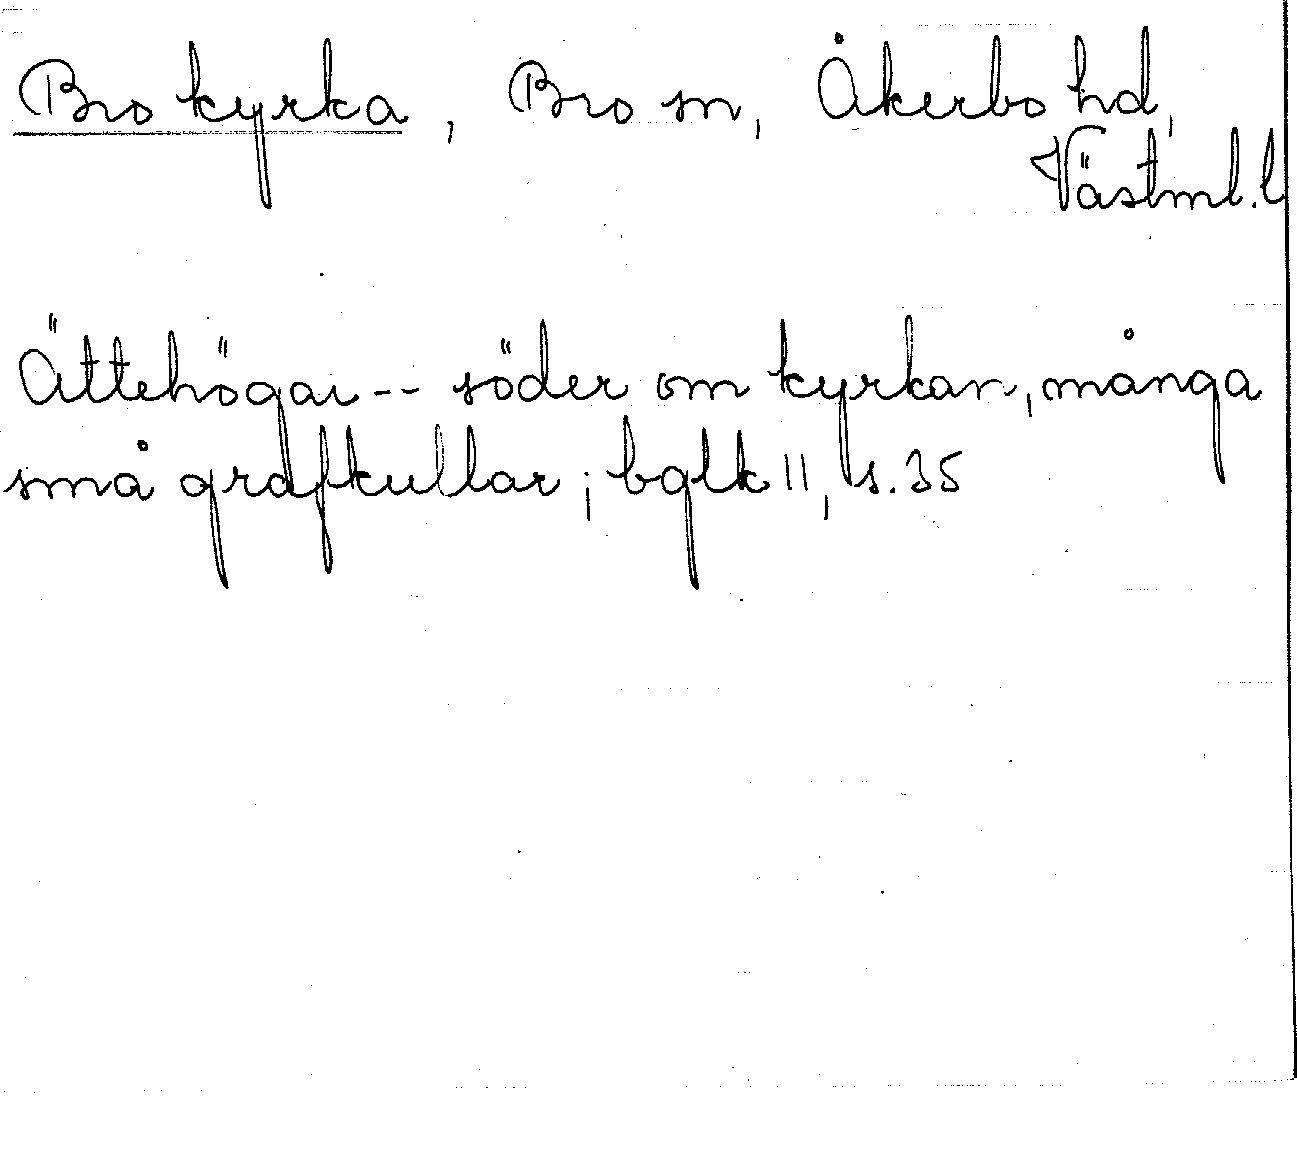 Bro kyrka, Bro sn, Åkerbo hd,
Västml. l
Ättehögar -- söder om kyrkan, många
små grafkullar; bglk 11, s. 35